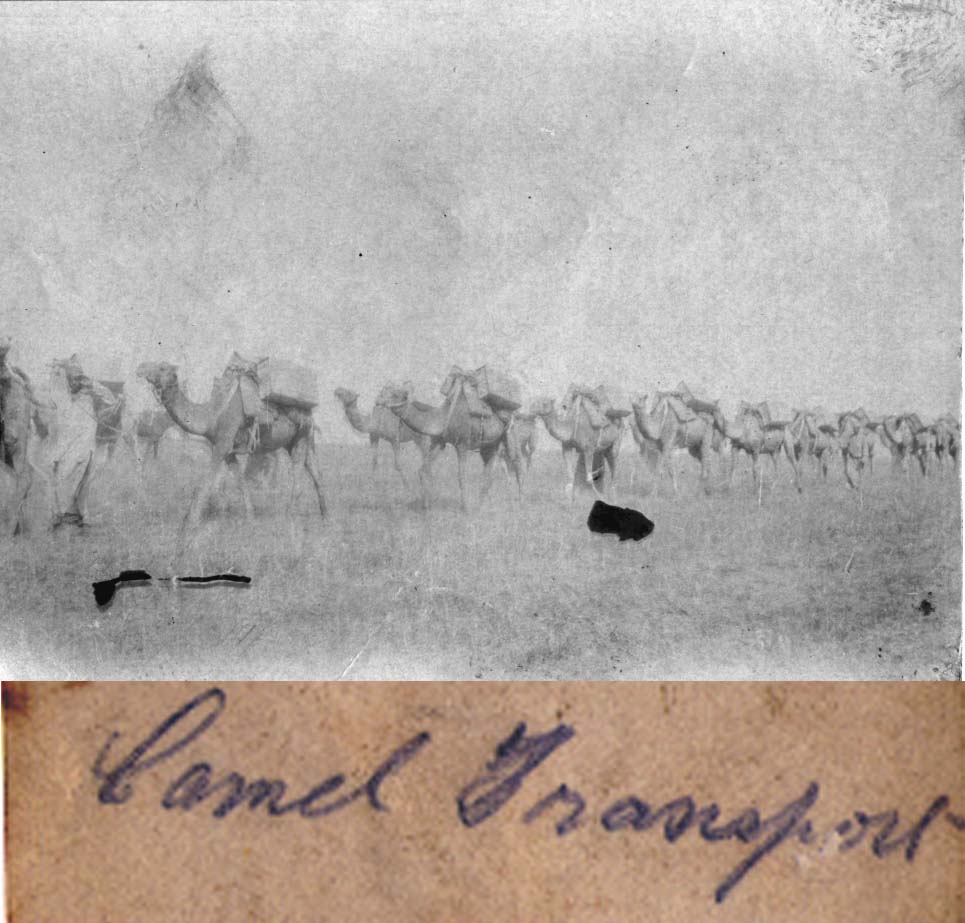 Camel Transport